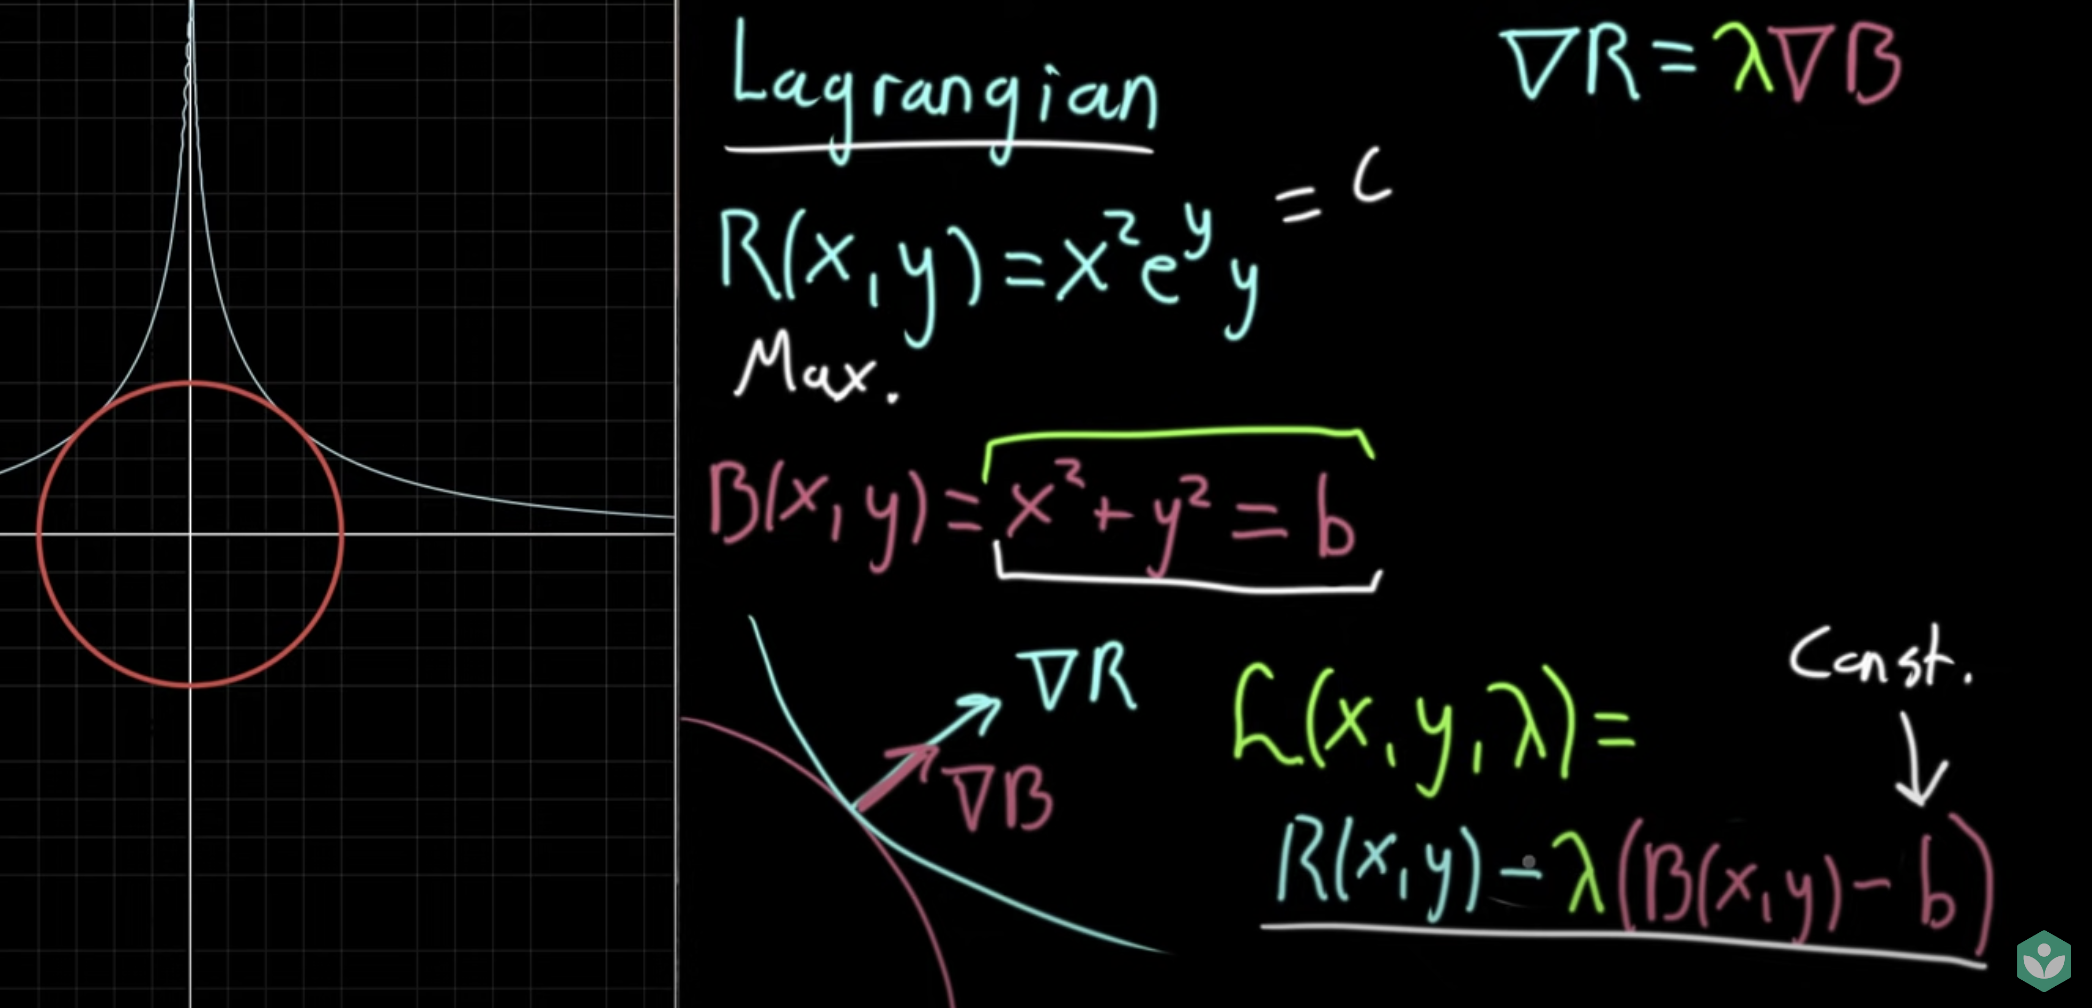 Lagrangian
∇R = λ∇B
R(x, y) = x²e^y y = C
Max.
B(x, y) = x² + y² = b
∇R
∇B
ℒ(x, y, λ) =
Const.
R(x, y) − λ(B(x, y) − b)